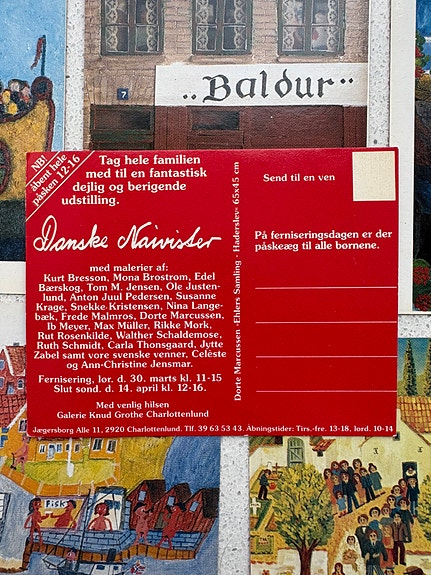 „Baldur"
7
NB!
åbent hele
påsken 12-16
Tag hele familien
med til en fantastisk
dejlig og berigende
udstilling.
Danske Naivister
med malerier af:
Kurt Bresson, Mona Brostrøm, Edel
Bærskog, Tom M. Jensen, Ole Justen-
lund, Anton Juul Pedersen, Susanne
Krage, Snekke-Kristensen, Nina Lange-
bæk, Frede Malmros, Dorte Marcussen,
Ib Meyer, Max Müller, Rikke Mork,
Rut Rosenkilde, Walther Schaldemose,
Ruth Schmidt, Carla Thonsgaard, Jytte
Zabel samt vore svenske venner, Celéste
og Ann-Christine Jensmar.
Fernisering, lor. d. 30. marts kl. 11-15
Slut sond. d. 14. april kl. 12-16.
Med venlig hilsen
Galerie Knud Grothe Charlottenlund
Jægersborg Alle 11, 2920 Charlottenlund. Tlf. 39 63 53 43. Åbningstider: Tirs.-fre. 13-18, lord. 10-14
Dorte Marcussen -Ehlers Samling - Haderslev- 65x45 cm
Send til en ven
På ferniseringsdagen er der
påskeæg til alle børnene.
Fisk